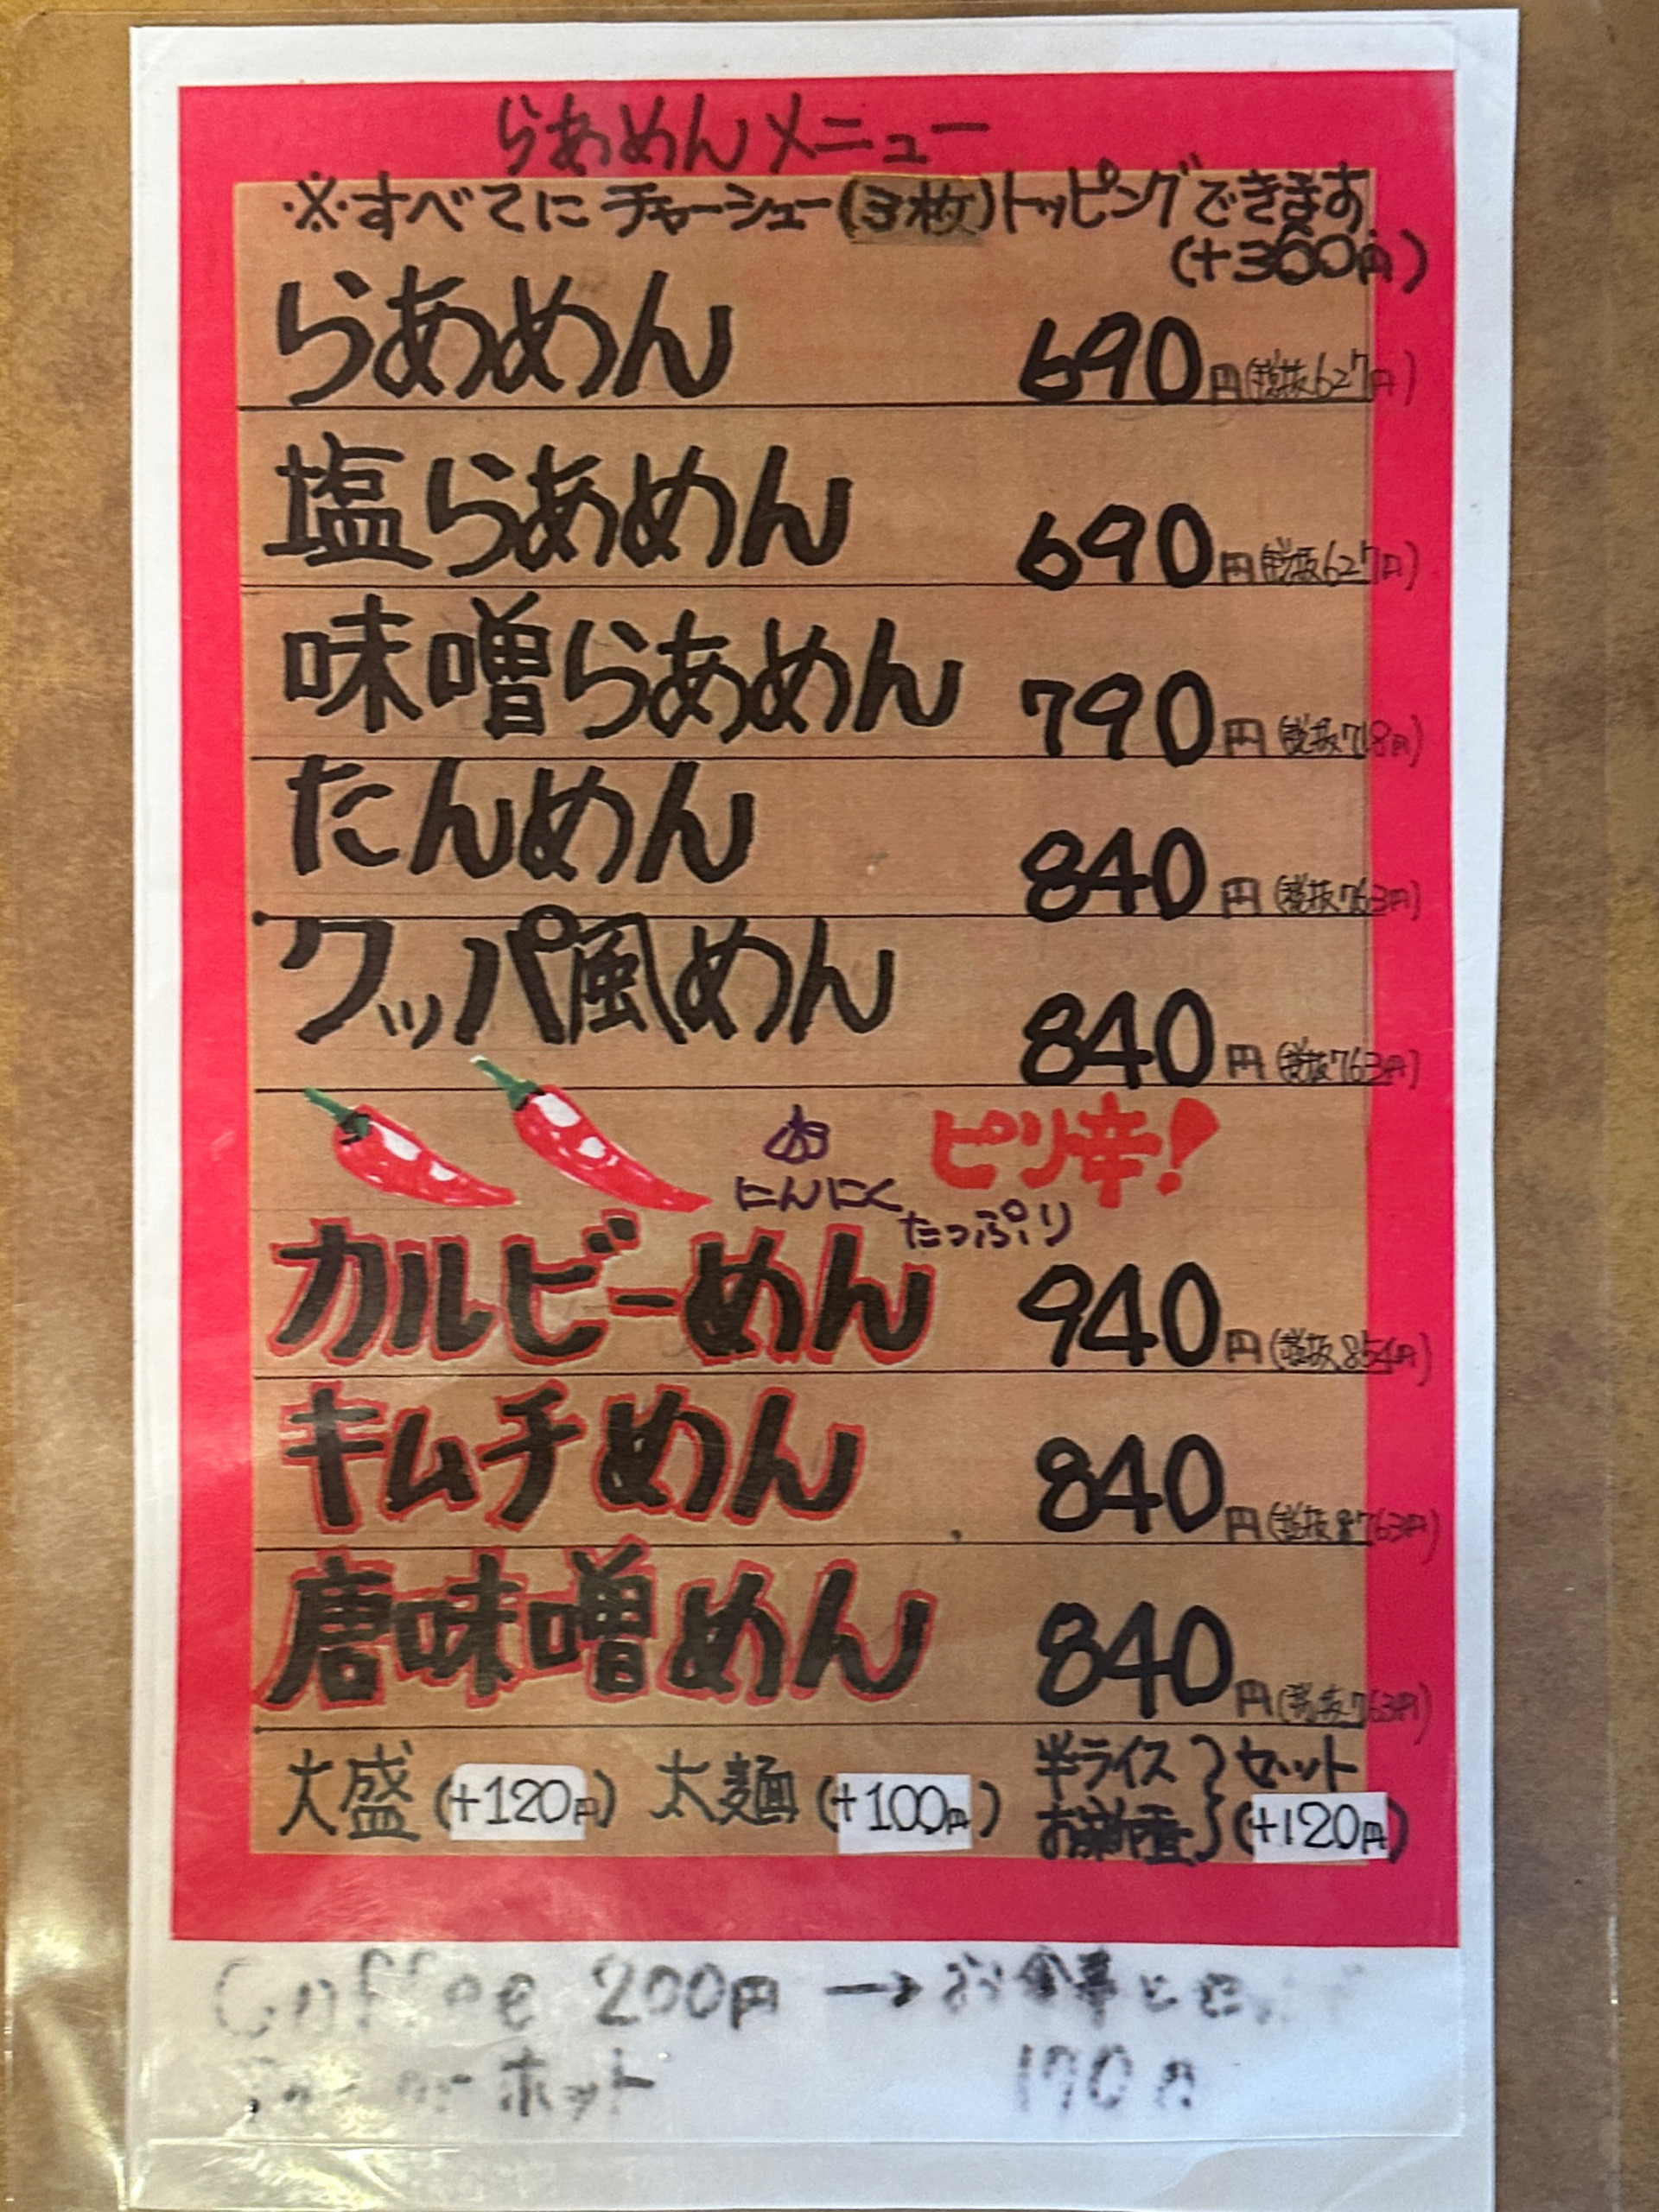 らあめんメニュー
※すべてにチャーシュー(3枚)トッピングできます
(+360円)
らあめん 690円(税抜627円)
塩らあめん 690円(税抜627円)
味噌らあめん 790円(税抜718円)
たんめん 840円(税抜763円)
クッパ風めん 840円(税抜763円)
ピリ辛!
にんにく
たっぷり
カルビーめん 940円(税抜854円)
キムチめん 840円(税抜763円)
唐味噌めん 840円(税抜763円)
大盛(+120円) 太麺(+100円) 半ライス お新香 セット(+120円)
Coffee 200円 → お食事と
ホット 170円